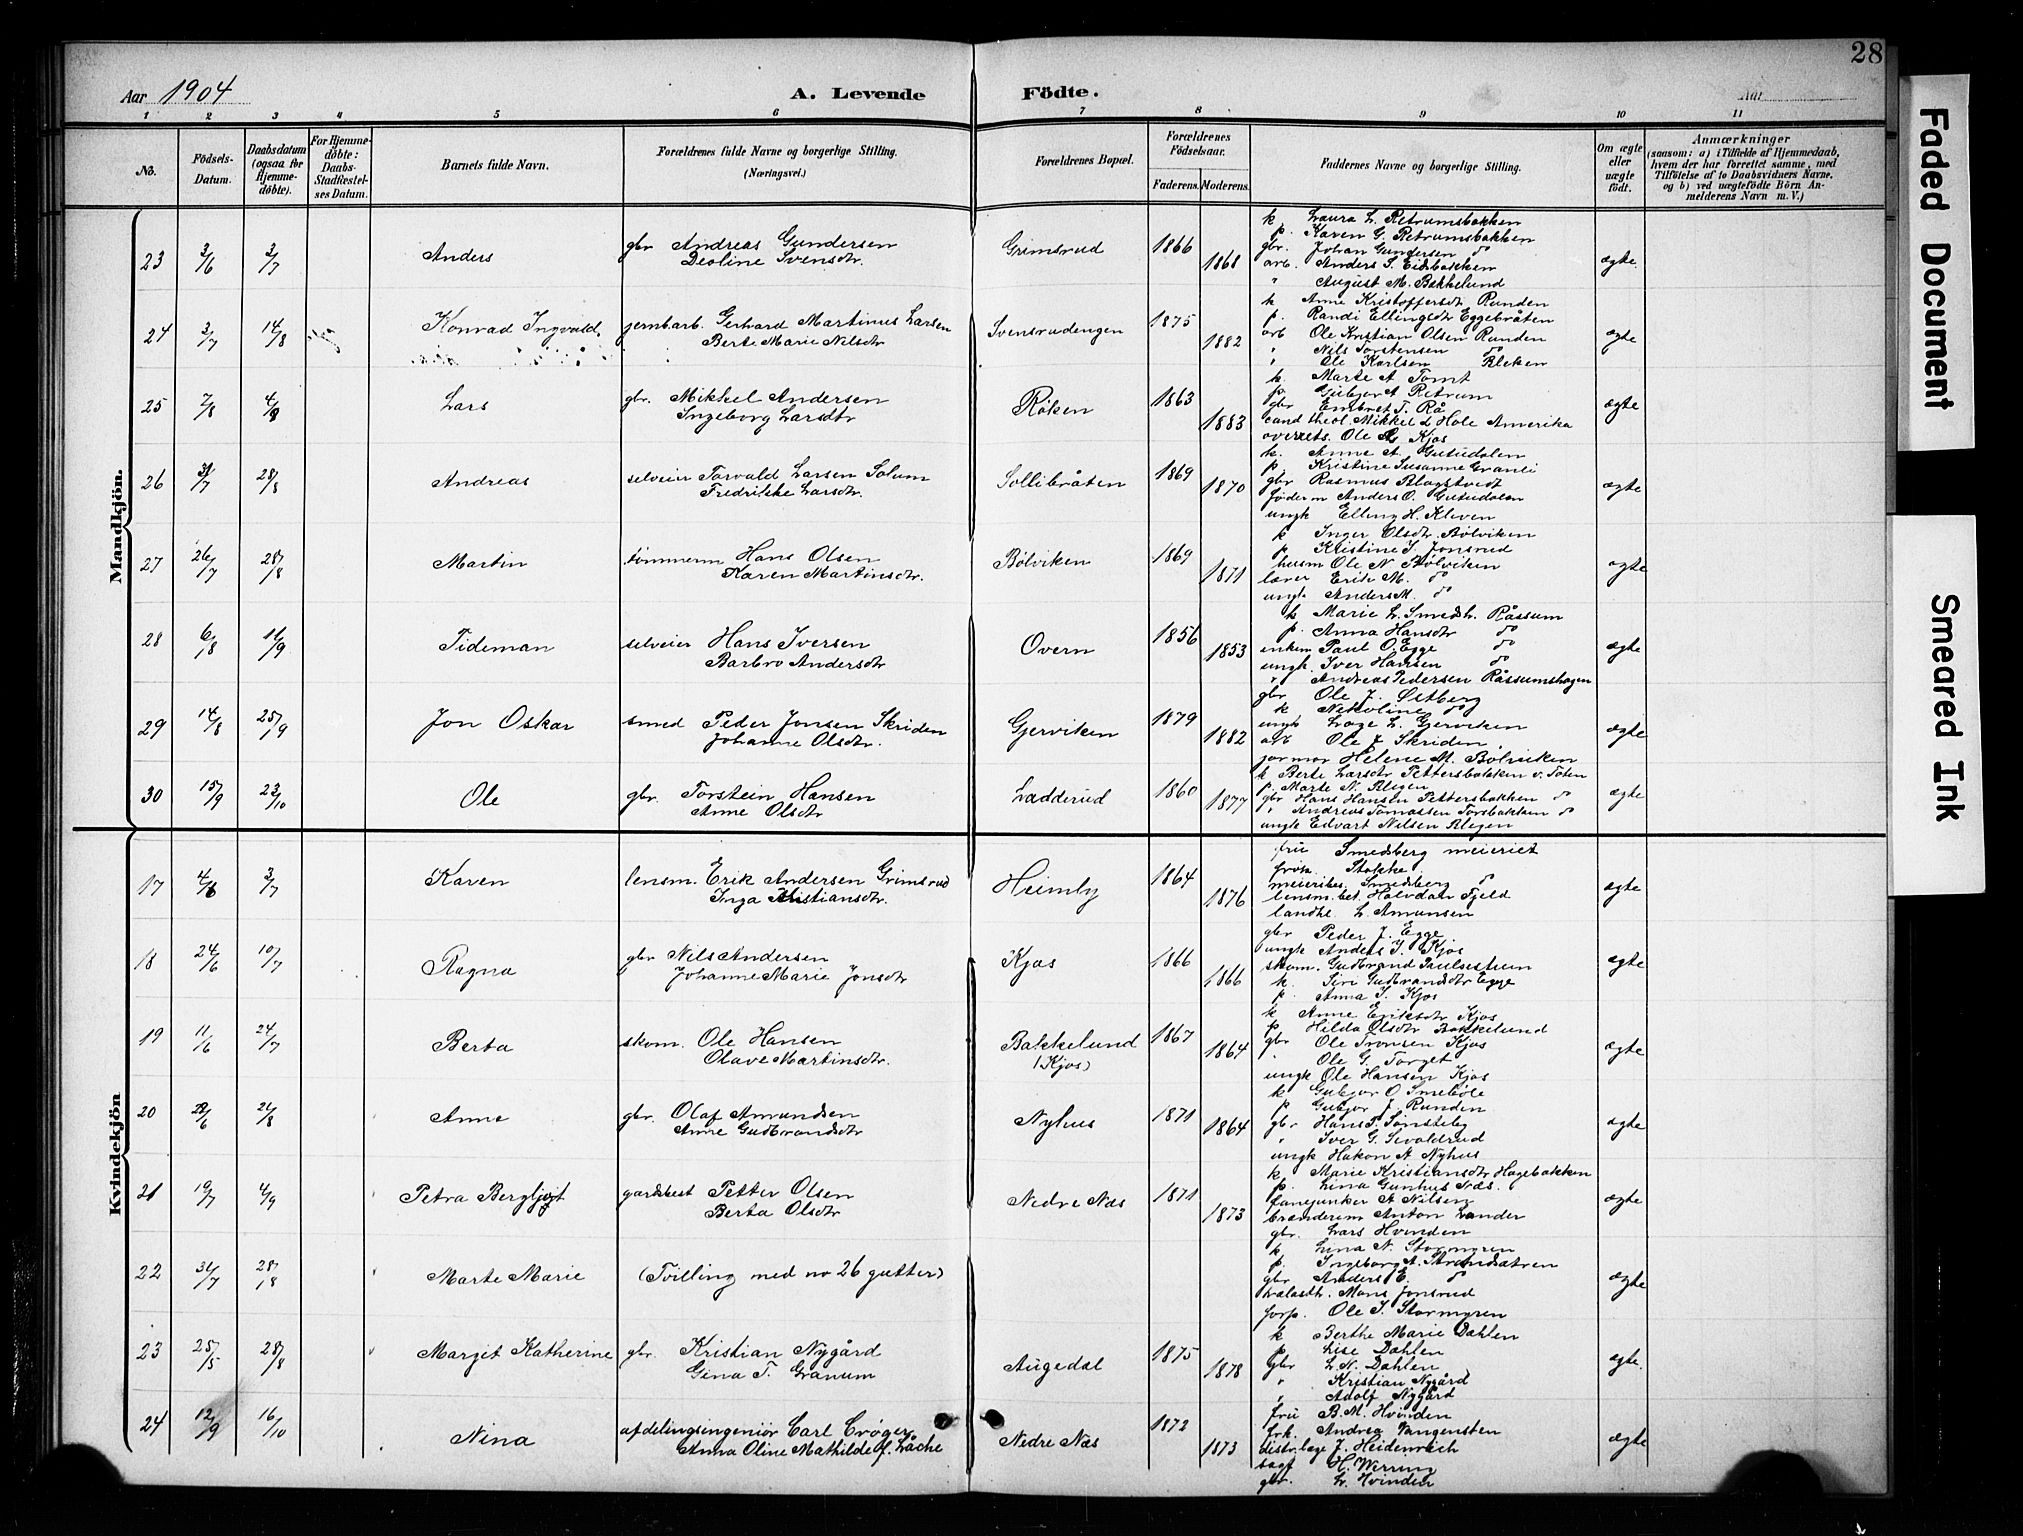 28
Aar 1904 A. Levende Födte. Aar
1 2 3 4 5 6 7 8 9 10 11
No. Födsels-Datum. Daabsdatum (ogsaa for Hjemmedöbte). For Hjemmedöbte: Daabs-Stadfæstelses Datum. Barnets fulde Navn. Forældrenes fulde Navne og borgerlige Stilling. (Næringsvei.) Forældrenes Bopæl. Forældrenes Födselsaar. Faderens. Moderens. Faddernes Navne og borgerlige Stilling. Om ægte eller uægte födt. Anmærkninger (saasom: a) i Tilfælde af Hjemmedaab, hvem der har forrettet samme, med Tilföielse af to Daabsvidners Navne, og b) ved uægtefödte Börn Anmelderens Navn m. V.)
Mandkjön.
23 3/6 3/7 Anders gbr Andreas Gundersen Grimsrud 1866 1868 ægte
Deoline Svensdtr.
k Laura L. Retrumsbakken
p. Karen G. Retrumsbakken
gbr. Johan Gundersen do
arb. Anders S. Eidsbakken
" August M. Bakkelund
24 3/7 14/8 Konrad Ingvald jernbarb. Gerhard Martinus Larsen Svensrudengen 1875 1882 ægte
Berte Marie Nilsdtr
k Anne Kristoffersdtr Runden
p. Randi Ellingsdtr Eggebråten
arb Ole Kristian Olsen Runden
" Nils Torstensen do
" Ole Karlsen Bleken
25 7/8 4/9 Lars gbr. Mikkel Andersen Røken 1863 1883 ægte
Ingeborg Larsdtr
k. Marte A Tomt
p. Gubjør A Retrum
gbr Embret T. Rå
cand theol. Mikkel L Hole Amerika
overrets. Ole Kjos
26 31/7 28/8 Andreas selveier Torvald Larsen Solum Sollibråten 1869 1870 ægte
Fredrikke Larsdtr.
k. Anne A. Gutudalen
p. Kristine Susanne Granli
gbr Rasmus Blagstvedt
føderm Anders O. Gutudalen
ungk Elling H. Kleven
27 26/7 28/8 Martin tømmerm Hans Olsen Bølviken 1869 1871 ægte
Karen Martinsdtr.
k Inger Olsdtr. Bølviken
p Kristine I. Jonsrud
husm Ole N Bølviken
lærer Erik M. do
ungk Anders M. do
28 6/8 11/9 Tideman selveier Hans Iversen Overn 1856 1853 ægte
Barbro Andersdtr
k Marie L. Smedsh. Råssum
p. Anna Hansdtr do
enkem Paul O. Egge do
ungk. Iver Hansen do
" Andreas Pedersen Råssumshagen
29 14/8 25/9 Jon Oskar smed Peder Jonsen Skriden Gjerviken 1879 1882 ægte
Johanne Olsdtr.
gbr Ole J. Østberg
k Nikoline do
ungk Lage L. Gjerviken
arb Ole J Skriden
jormor Helene M. Bølviken
30 15/9 23/10 Ole gbr. Torstein Hansen Ladderud 1860 1877 ægte
Anne Olsdtr
k Berte Larsdtr Pettersbakken v. Toten
p. Marte N. Blegen
gbr Hans Hansen Pettersbakken do
" Andreas Tomassen Torsbakken do
ungk Edvart Nilsen Blegen
Kvindekjön
17 4/6 3/7 Karen lensm. Erik Andersen Grimsrud Heimly 1864 1876 ægte
Inga Kristiansdtr.
fru Smedsberg meieriet
frøkn. Stokke
meieribes. Smedsberg do
lensm. bet. Halvdan Fjeld
landh. L. Amunsen
18 24/6 10/7 Ragna gbr Nils Andersen Kjos 1866 1866 ægte
Johanne Marie Jonsdtr
gbr Peder J. Egge
ungk Anders I. Kjos
skom. Gudbrand Paulsestuen
k. Siri Gudbrandsdtr Egge
p. Anna I. Kjos
19 11/6 24/7 Berta skom. Ole Hansen Bakkelund 1867 1864 ægte
Olave Martinsdtr. (Kjos)
k Anne Eriksdtr Kjos
p Hilda Olsdtr Bakkelund
gbr Ole Tronsen Kjos
" Ole G. Torget
ungk Ole Hansen Kjos
20 22/6 21/8 Anne gbr. Olaf Amundsen Nyhus 1871 1864 ægte
Anne Gudbrandsdtr
k Gubjør O Smebøle
p Gubjør J. Runden
gbr Hans T. Sønsteby
" Iver G. Sevaldrud
ungk Hakon A Nyhus
21 19/7 4/9 Petra Bergljot gardsbest Petter Olsen Nedre Næs 1871 1873 ægte
Berta Olsdtr
k Marie Kristiansdtr Hagebakken
p. Lina Gunhus Næs.
fanejunker A Nilsen
brænderim Anton Lander
gbr. Lars Hvinden
22 31/7 28/8 Marte Marie (Tvilling med no 26 gutter) ægte
k Lina N. Stormyren
p. Ingeborg A. Strandsætren
gbr Anders E. do
Måns Jonsrud
forp. Ole I. Stormyren
23 25/5 28/8 Margit Katherine gbr. Kristian Nygård Augedal 1875 1878 ægte
Gina T. Granum
k Berthe Marie Dahlen
p Lise Dahlen
gbr L. N. Dahlen
" Kristian Nygård
" Adolf Nygård
24 12/9 16/10 Nina afdelingsingeniør Carl Crøger Nedre Næs 1872 1873 ægte
Anna Oline Mathilde f. Låche
fru B. M. Hvinden
frk. Andrea Vangensten
distr.læge J. Heidenreich
sagf H. Werring
gbr. L. Hvinden
Faded Document
Smeared Ink